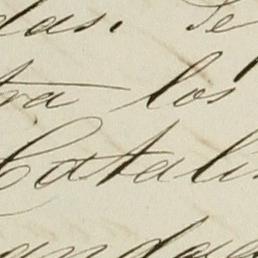 das. Se
tra los
Catali